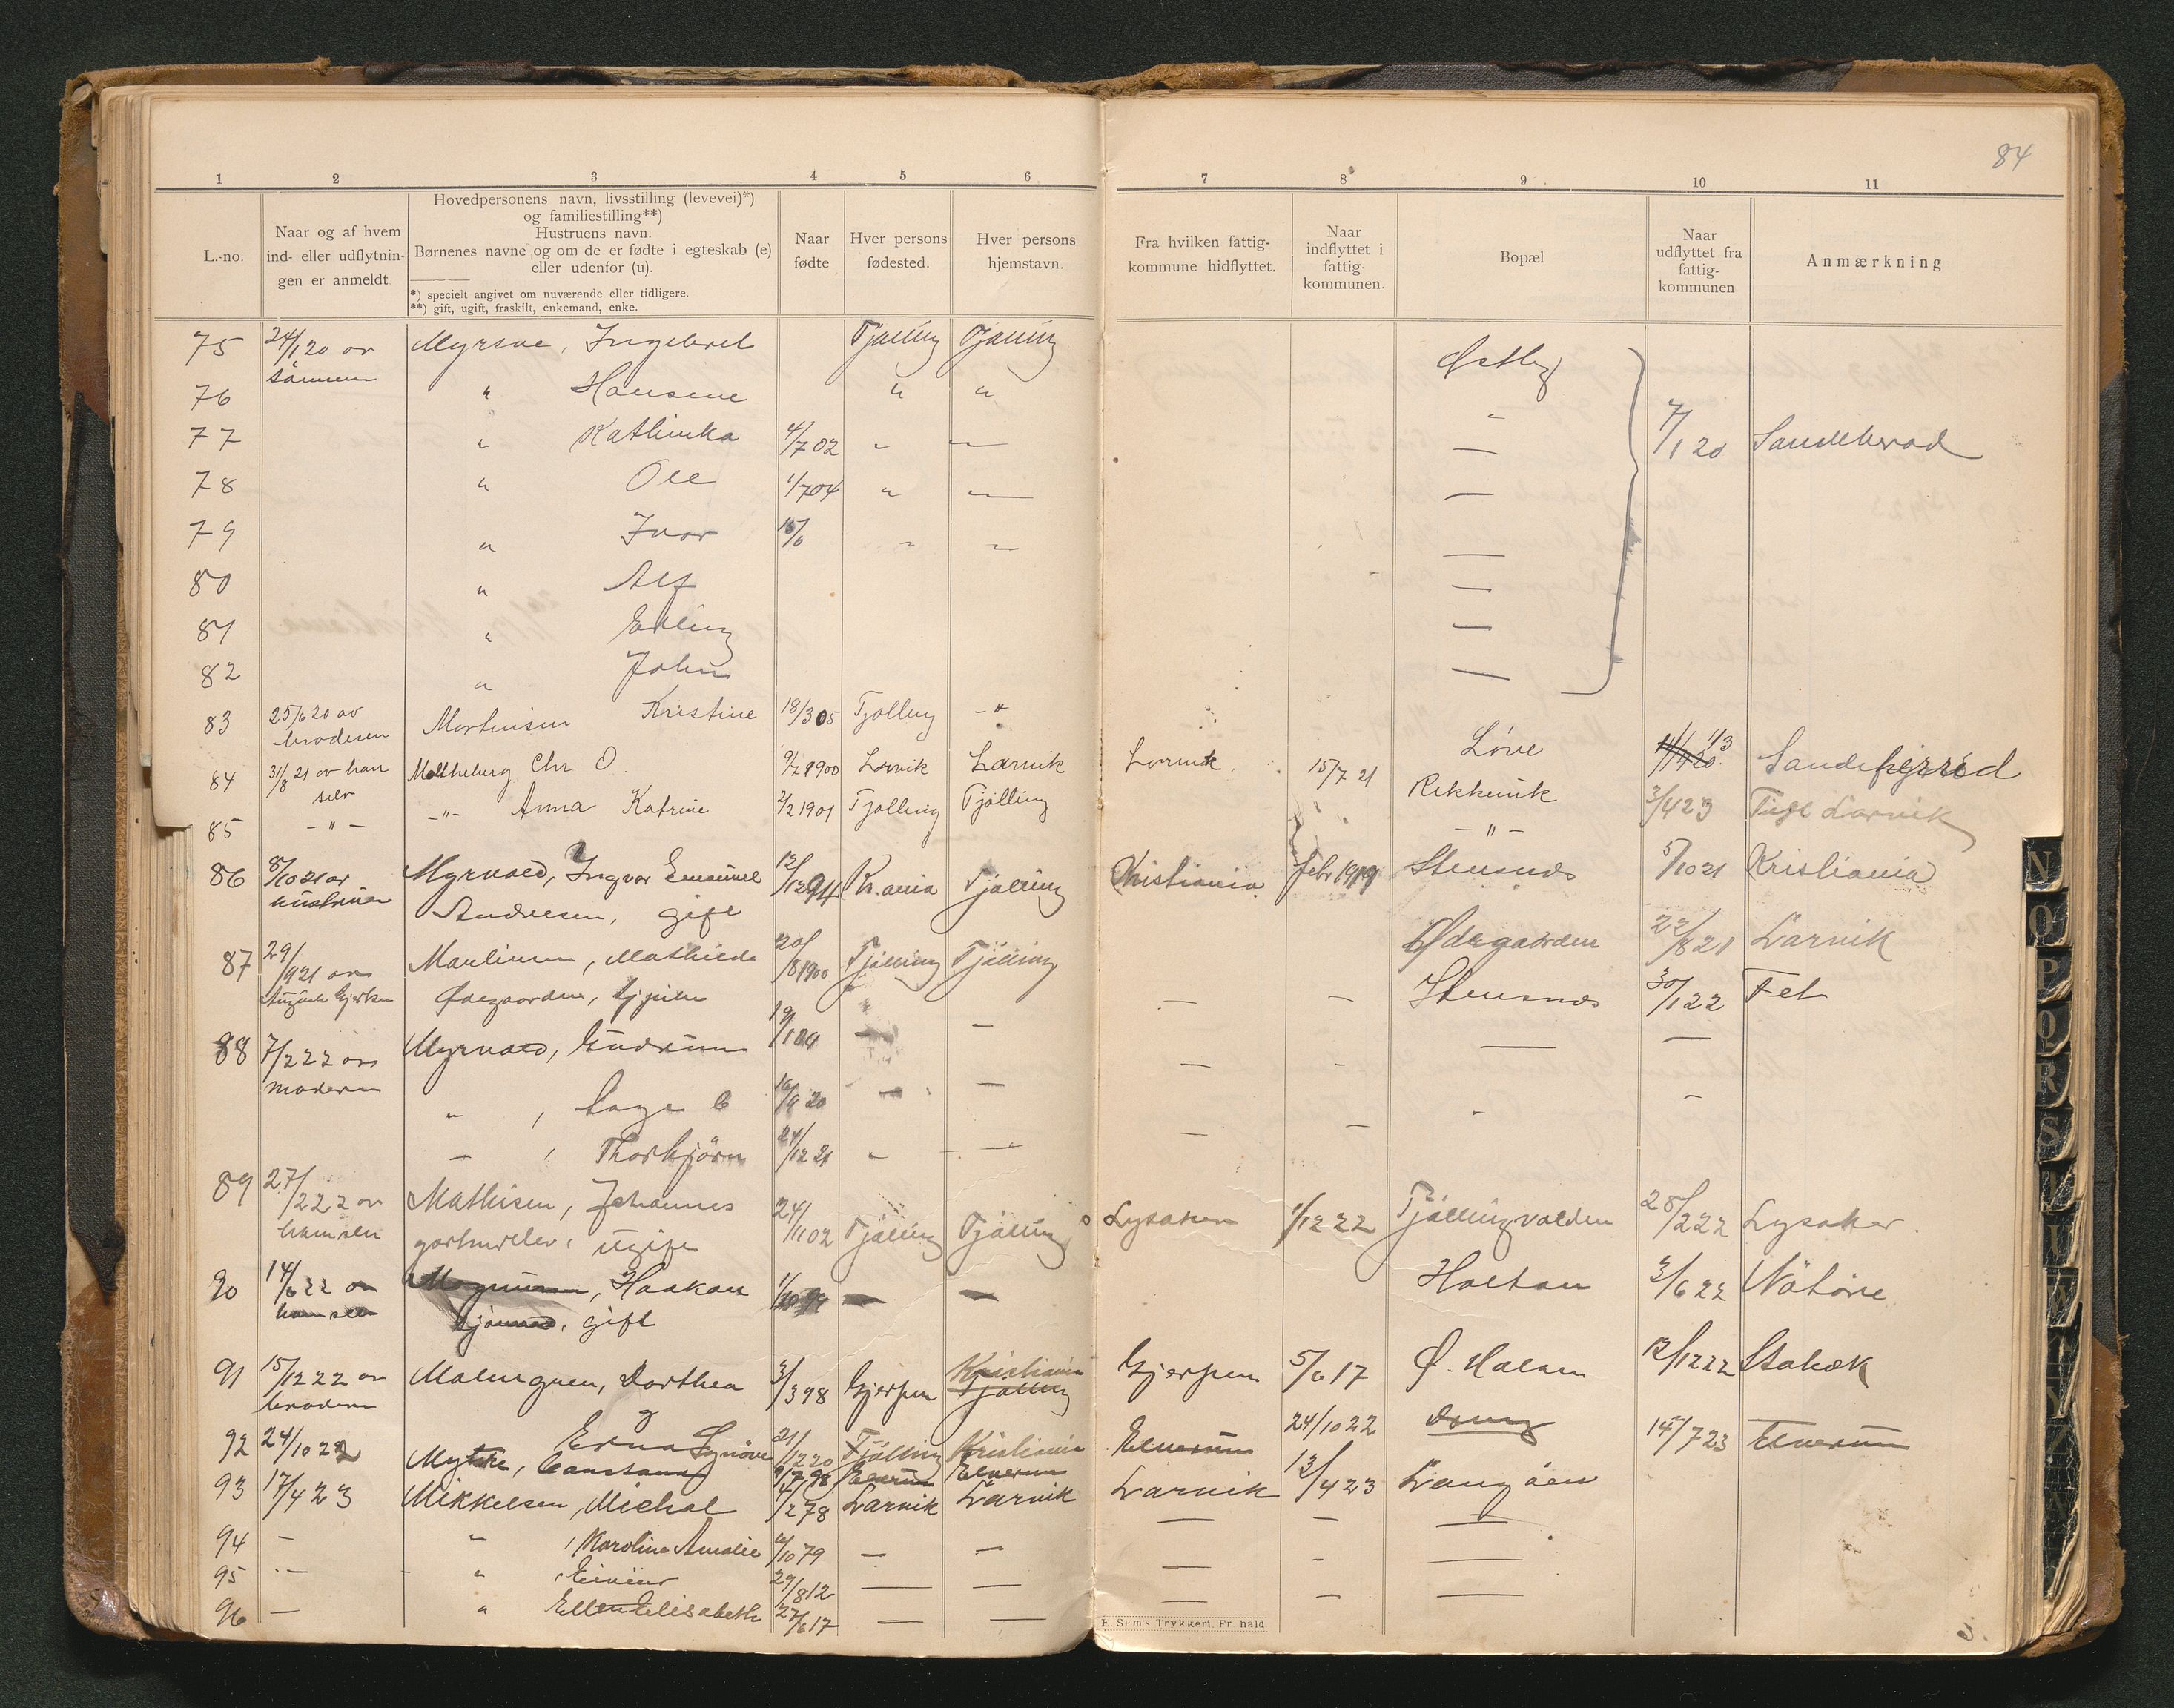 84
1 2 3 4 5 6 7 8 9 10 11
L.-no.
Naar og af hvem
ind- eller udflytnin-
gen er anmeldt
Hovedpersonens navn, livsstilling (levevei)*)
og familiestilling**)
Hustruens navn.
Børnenes navne og om de er fødte i egteskab (e)
eller udenfor (u).
*) specielt angivet om nuværende eller tidligere.
**) gift, ugift, fraskilt, enkemand, enke.
Naar
fødte
Hver persons
fødested.
Hver persons
hjemstavn.
Fra hvilken fattig-
kommune hidflyttet.
Naar
indflyttet i
fattig-
kommunen.
Bopæl
Naar
udflyttet fra
fattig-
kommunen
Anmærkning
75 24/1 20 av Myrvoe, Ingebret Tjølling Tjølling Østby
sønnen
76 " Hansine " "
77 " Kathinka 4/7 02 " — — 7/1 20 Sandeherad
78 " Ole 1/7 04 " — —
79 " Ivar — — —
80 " Alf —
81 " Erling —
82 " John —
83 25/6 20 av Mortensen Kristine 18/3 05 Tjølling - " Løve 1/3 Sandefjord
broderen
84 31/8 21 av han Moltheberg Chr O. 9/7 1900 Larvik Larvik Larvik 15/7 21 Rekkevik 3/4 23 Tilfl Larvik
selv
85 - " - - " - Anna Katrine 2/2 1901 Tjølling Tjølling - " -
86 8/10 21 av Myrvold, Ingvar Emanuel 12/12 94 Kr.ania Tjølling Kristiania febr 1919 Stensnes 5/10 21 Kristiania
hustruen Andresen, gift
87 29/9 21 av Martinsen, Mathilde 20/8 1900 Tjølling Tjølling Ødegaarden 22/8 21 Larvik
Ødegaarden,
88 7/2 22 av Myrvold, Gudrun — — — — Stensnes 30/1 22 Fet
moderen
" , Aage E 16/9 20 — — — — — —
— , Thorbjørn 24/12 21 " — — — - -
89 27/2 22 av Mathisen, Johannes 24/11 02 Tjølling Tjølling Lysaker 1/12 22 Tjøllingvolden 28/2 22 Lysaker.
ham selv ugift
90 14/6 22 av Haakan — — Holtan 3/6 22 Nøterø
ham selv gift
91 15/12 22 av Malmgren, Dorthea 3/3 98 Gjerpen Kristiania Tjølling Gjerpen 5/6 17 Ø. Halsen 12/12 22 Stabæk
broderen
Erna Synøve 21/12 20 Tjølling Kristiania
92 24/10 22 Constance 9/7 98 Elverum Elverum Elverum 24/10 22 14/7 23 Elverum
93 17/4 23 Mikkelsen, Michal 4/2 78 Larvik Larvik Larvik 13/4 23 Langøen
94 — " , Karoline Amalie 4/10 79 — — — — —
95 — " , Einar 29/8 12 — — — - —
96 — " Ellen Elisabeth 27/6 17 — — — — —
E. Sem's Trykkeri, Fr.hald
N
O
P
Q
R
S
U
W
Y